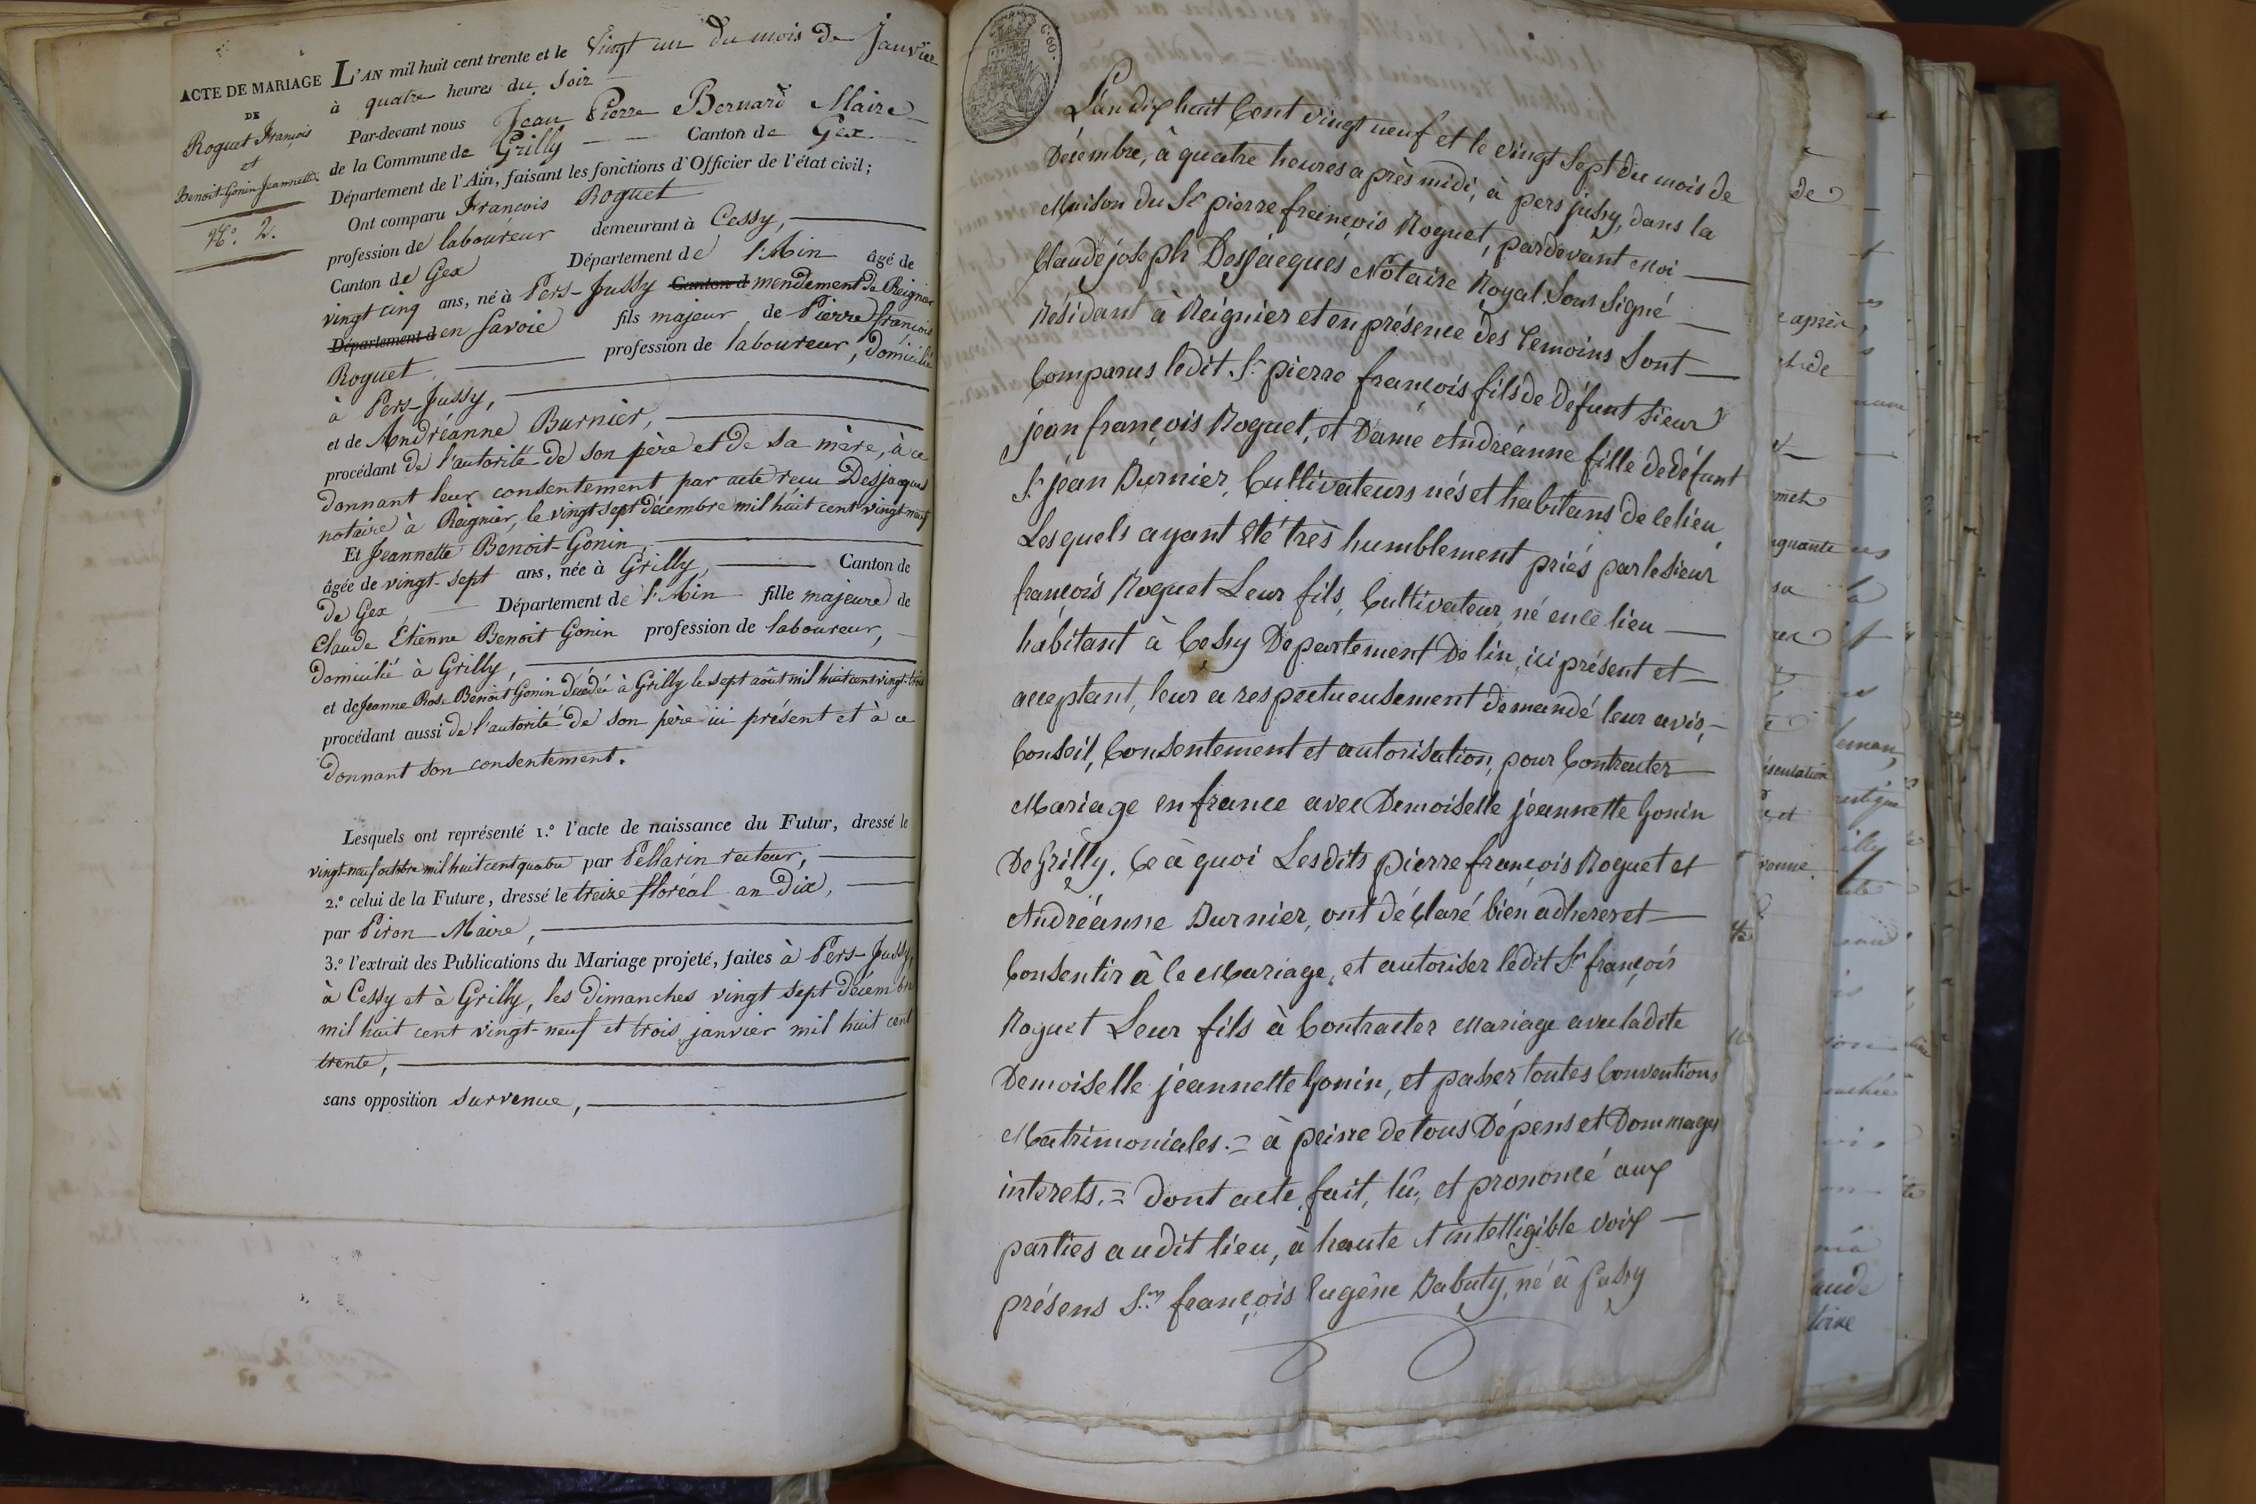 ACTE DE MARIAGE
DE
Roguet François
et
Benoit-Gonin Jeannette
N.° 2.
L'AN mil huit cent trente et le vingt un du mois de Janvier
à quatre heures du soir
Par-devant nous Jean Pierre Bernard Maire
de la Commune de Grilly Canton de Gex
Département de l'Ain, faisant les fonctions d'Officier de l'état civil;
Ont comparu François Roguet
profession de laboureur demeurant à Cessy,
Canton de Gex Département de l'Ain âgé de
vingt cinq ans, né à Pers-Jussy Canton d mendement de Reignier
Département d en Savoie fils majeur de Pierre françois
Roguet profession de laboureur, domicilié
à Pers-Jussy,
et de Andréanne Burnier,
procédant de l'autorité de son père et de sa mère, à ce
donnant leur consentement par acte reçu Desjacques
notaire à Reignier, le vingt sept décembre mil huit cent vingt-neuf
Et Jeannette Benoit-Gonin,
âgée de vingt-sept ans, née à Grilly, Canton de
de Gex Département de l'Ain fille majeure de
Claude Etienne Benoit Gonin profession de laboureur,
domicilié à Grilly,
et de Jeanne Rose Benoit Gonin décédée à Grilly le sept août mil huit cent vingt-trois
procédant aussi de l'autorité de son père ici présent et à ce
donnant son consentement.
Lesquels ont représenté 1.° l'acte de naissance du Futur, dressé le
vingt-neuf octobre mil huit cent quatre par Pellarin recteur,
2.° celui de la Future, dressé le treize floréal an Dix,
par Piron Maire,
3.° l'extrait des Publications du Mariage projeté, faites à Pers-Jussy,
à Cessy et à Grilly, les dimanches vingt sept décembre
mil huit cent vingt-neuf et trois janvier mil huit cent
trente,
sans opposition survenue,
L'an dix huit Cent vingt neuf et le vingt Sept du mois de
Décembre, à quatre heures après midi, à pers jussy, dans la
Maison du Sr pierre freinçois Roguet, pardevant Moi
Claude joseph Desjacques Notaire Royal Sous Signé
Résidant à Reignier et en présence des temoins Sont
Comparus ledit Sr pierre françois fils de Défunt Sieur
jean françois Roguet, et Dame Andréanne fille de défunt
Sr jéan Burnier, Cultivateurs nés et habitans de ce lieu,
Lesquels ayant été très humblement priés par le Sieur
françois Roguet Leur fils, Cultivateur, né en ce lieu
habitant à Cessy Departement De lin, ici présent et
acceptant, leur a respectueusement demandé leur avis,
Conseil, Consentement et autorisation, pour Contracter
Mariage en france avec Demoiselle jeannette Gonin
De Grilly. Ce à quoi Lesdits pierre françois Roguet et
Andréanne Burnier, ont déclaré bien adherer et
Consentir à ce Mariage, et autoriser ledit Sr françois
Roguet Leur fils à Contracter Mariage avec ladite
Demoiselle jeannette Gonin, et passer toutes Conventions
Matrimoniales. = à peine de tous Dépens et Dommages
interets. = Dont acte, fait, lû, et prononcé aux
parties audit lieu, à haute et intelligible voix
présens Srs françois Eugène Dabuty, né à